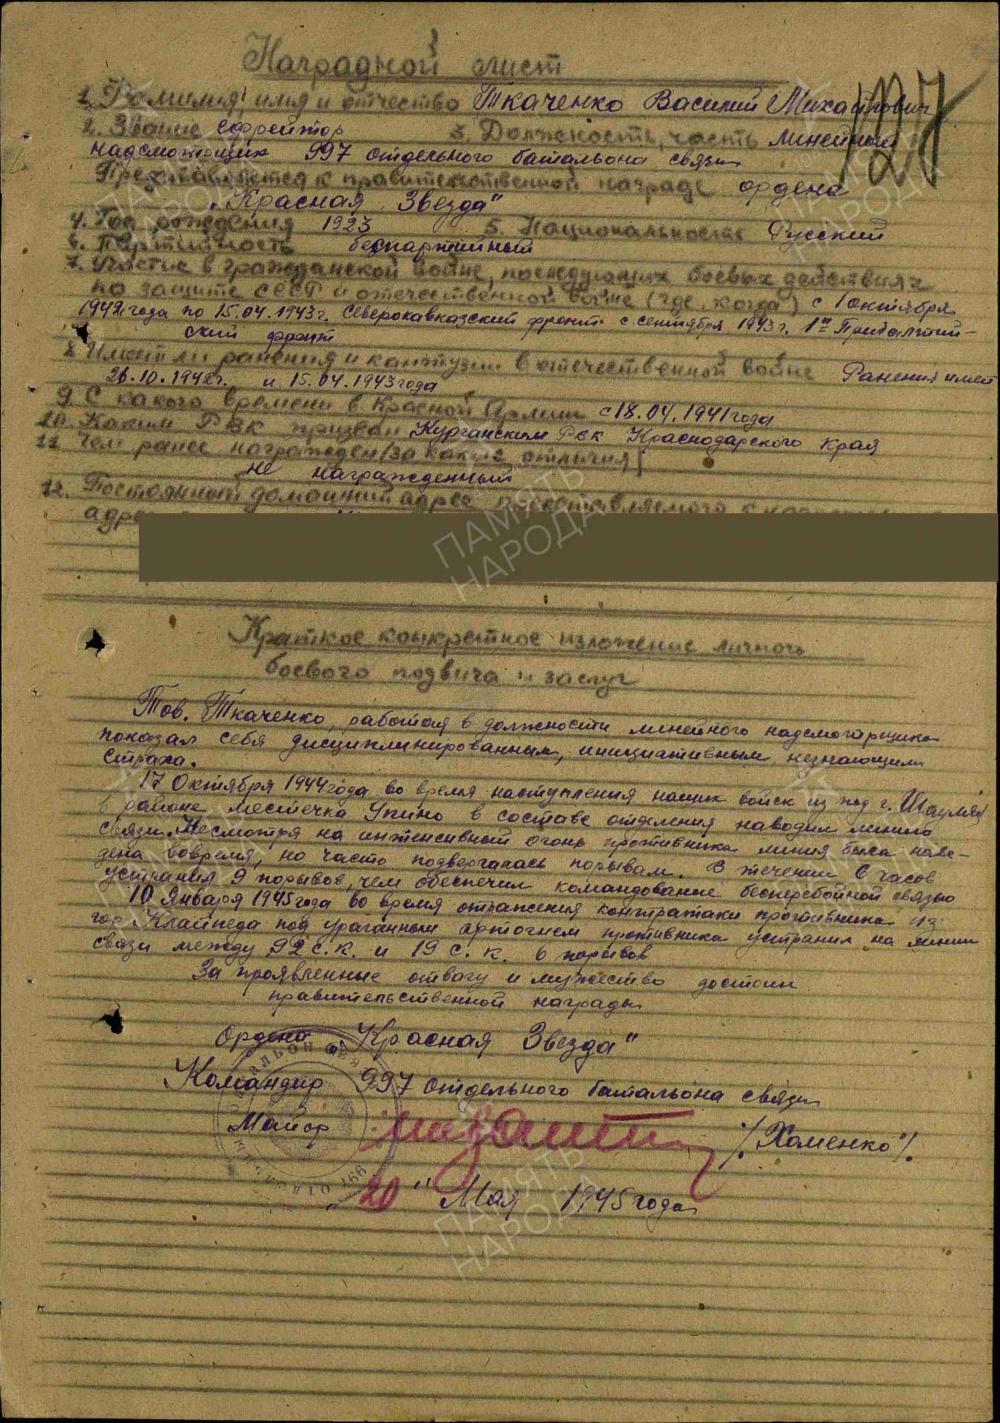 Наградной лист
127
1. Фамилия, имя и отчество Ткаченко Василий Михайлович
2. Звание ефрейтор 3. Должность, часть линейный
надсмотрщик 997 отдельного батальона связи
Представляется к правительственной награде ордена
„Красная Звезда"
4. Год рождения 1923 5. Национальность Русский
6. Партийность беспартийный
7. Участие в гражданской войне, последующих боевых действиях
по защите СССР и отечественной войне (где, когда) с 1 октября
1942 года по 15.04.1943г. Северокавказский фронт с сентября 1943г. 1й Прибалтий-
ский фронт
8. Имеет ли ранения и контузии в отечественной войне Ранения имеет
26.10.1942г. и 15.04.1943 года
9. С какого времени в Красной Армии с 18.04.1941 года
10. Каким РВК призван Курганским РВК Краснодарского края
11. Чем ранее награжден (за какие отличия)
не награжденный
12. Постоянный домашний адрес представляемого к
Краткое конкретное изложение личного
боевого подвига и заслуг
Тов. Ткаченко, работая в должности линейного надсмотрщика
показал себя дисциплинированным, инициативным, незнающим
страха.
17 Октября 1944 года, во время наступления наших войск из под г. Шауляй
в районе местечка Упино в составе отделения наводил линию
связи. Несмотря на интенсивный огонь противника линия была наве-
дена вовремя, но часто подвергалась порывам. В течении 6 часов
устранил 9 порывов, чем обеспечил командование бесперебойной связью
10 Января 1945 года во время отражения контратаки противника из
гор. Клайпеда под ураганным артогнем противника устранил на линии
связи между 92 с.к. и 19 с.к. 6 порывов
За проявленные отвагу и мужество достоин
правительственной награды
Ордена „Красная Звезда"
Командир 997 отдельного батальона связи
Майор /Хоменко/.
„20" Мая 1945 года
ПАМЯТЬ
НАРОДА